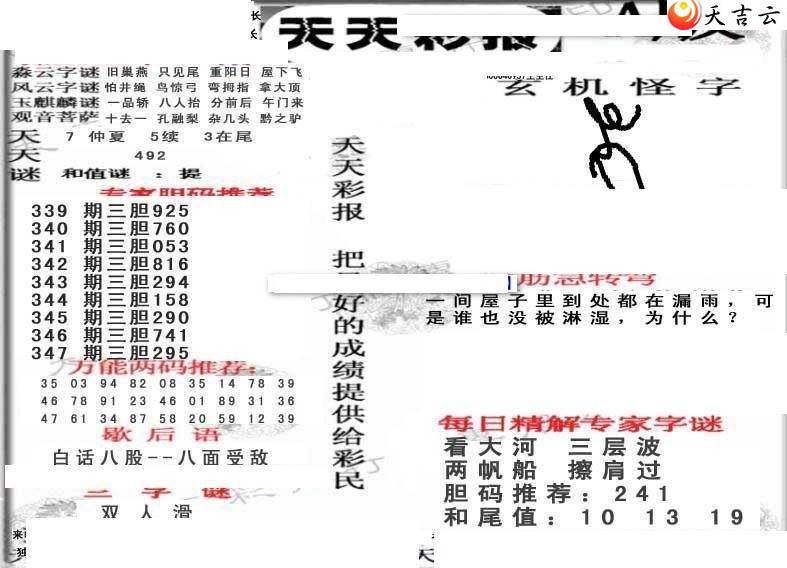 天吉云
天天彩报
玄机怪字
森云字谜 旧巢燕 只见尾 重阳日 屋下飞
风云字谜 怕井绳 鸟惊弓 弯拇指 拿大顶
玉麒麟谜 一品轿 八人抬 分前后 午门来
观音菩萨 十去一 孔融梨 杂几头 黔之驴
天 7 仲夏 5续 3在尾
天 492
谜 和值谜 ：提
专家胆码推荐
339 期三胆925
340 期三胆760
341 期三胆053
342 期三胆816
343 期三胆294
344 期三胆158
345 期三胆290
346 期三胆741
347 期三胆295
万能两码推荐：
35 03 94 82 08 35 14 78 39
46 78 91 23 46 01 89 31 36
47 61 34 87 58 20 59 12 39
歇后语
白话八股--八面受敌
三字谜
双人滑
天天彩报 把最好的成绩提供给彩民
脑急转弯
一间屋子里到处都在漏雨，可
是谁也没被淋湿，为什么？
每日精解专家字谜
看大河 三层波
两帆船 擦肩过
胆码推荐：241
和尾值：10 13 19